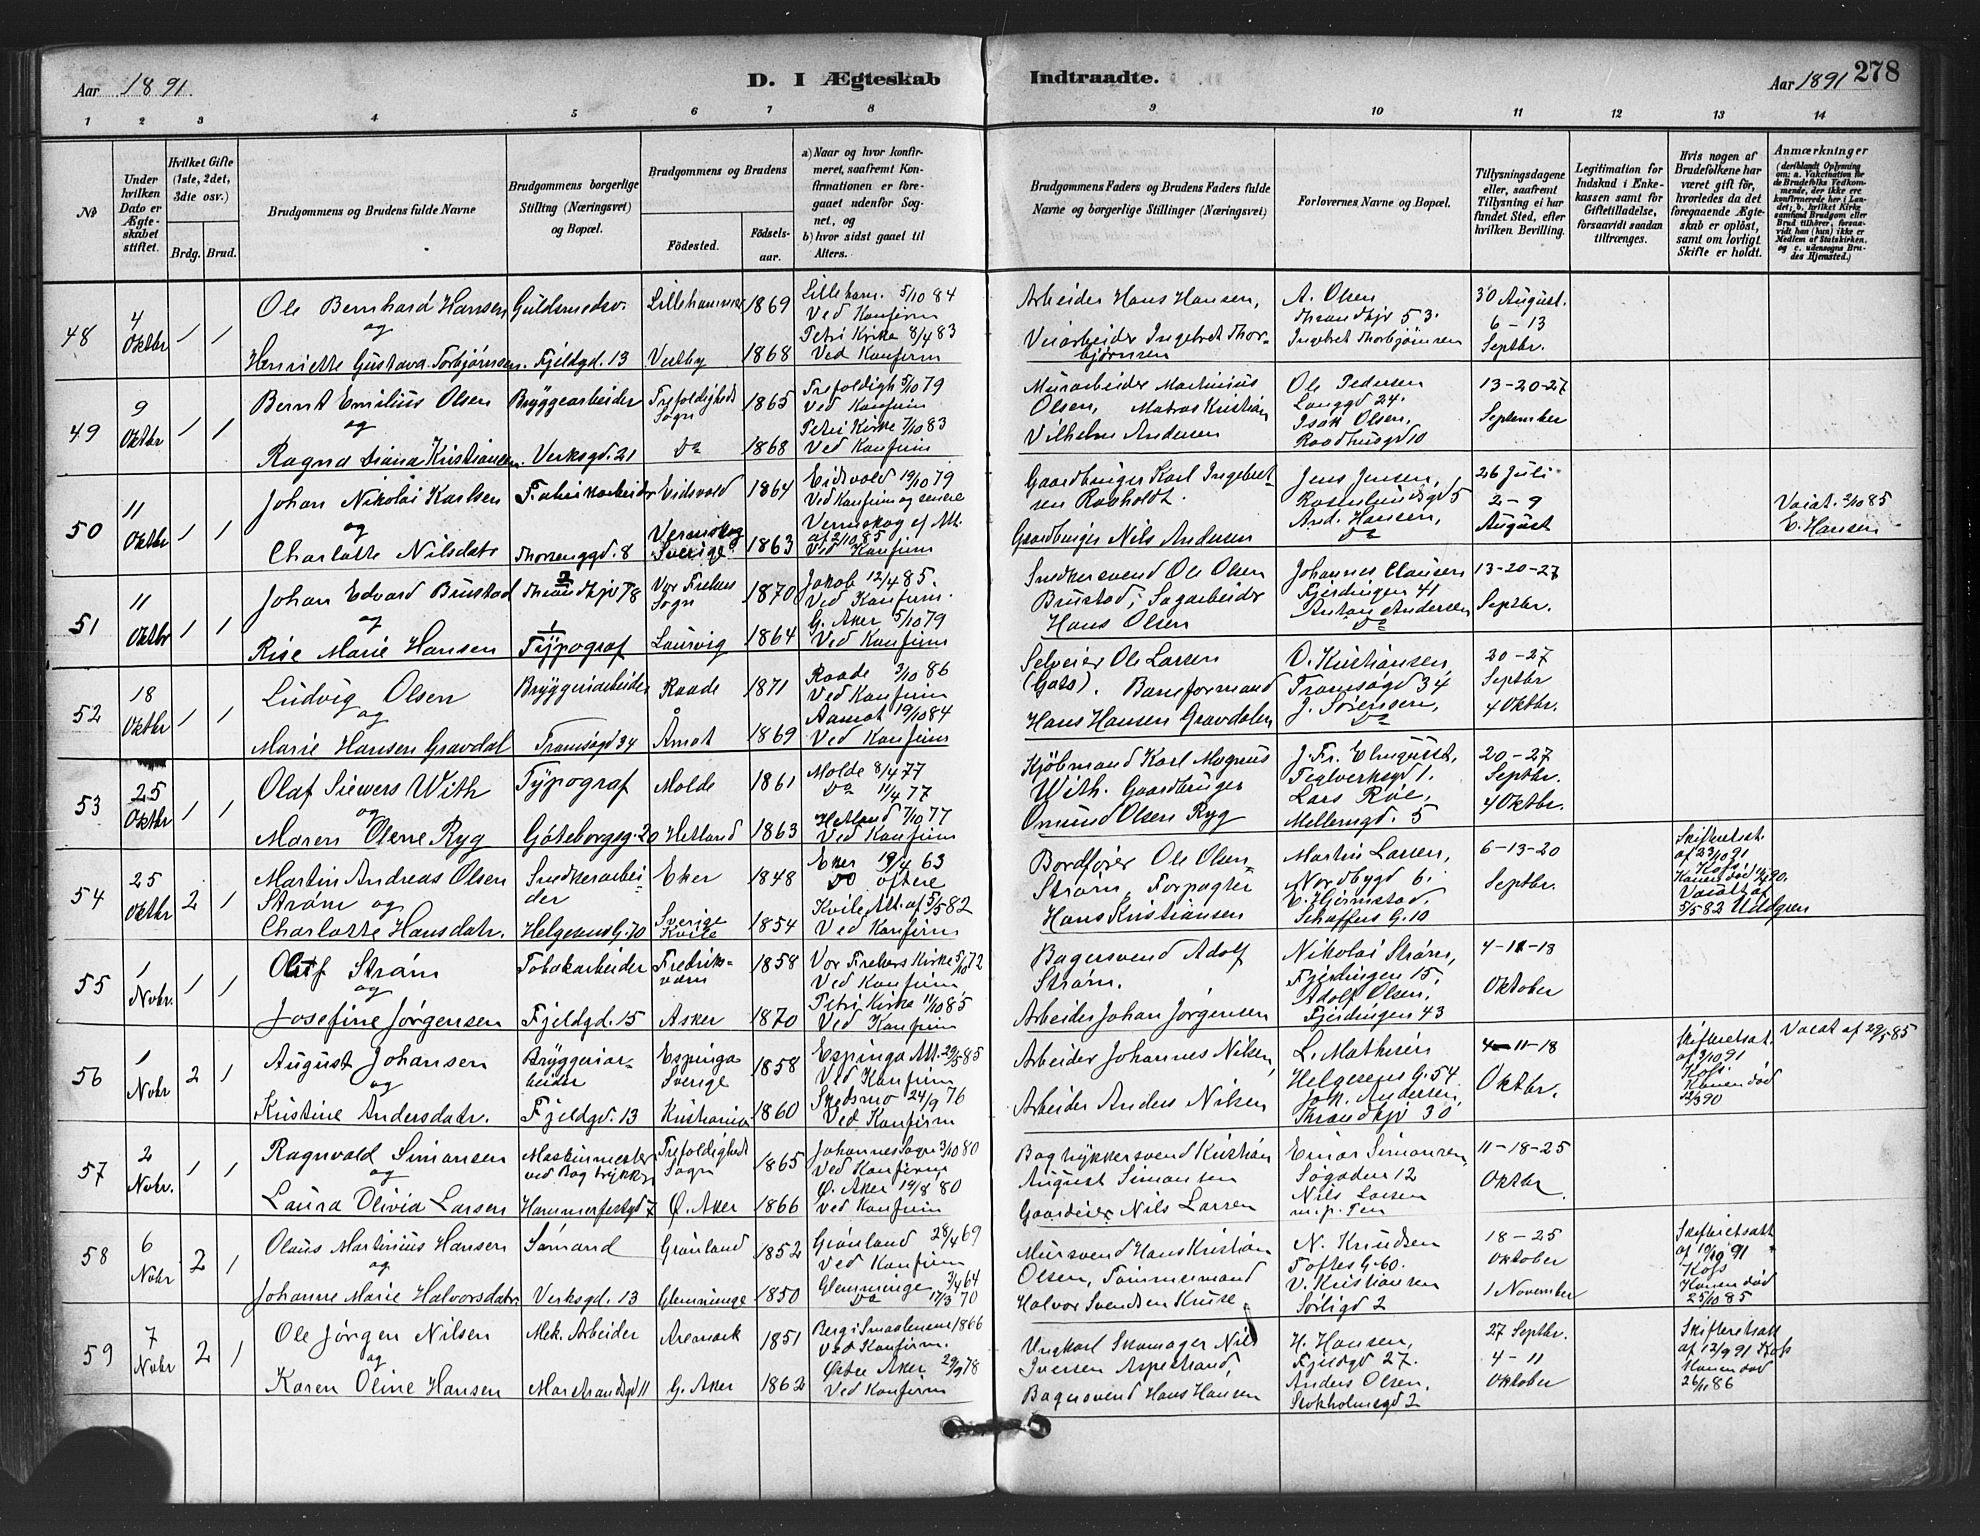 Aar 1891.
D. I Ægteskab Indtraadte.
Aar 1891 278
1 2 3 4 5 6 7 8 9 10 11 12 13 14
No
Under hvilken Dato er Ægteskabet stiftet.
Hvilket Gifte (1ste, 2det, 3die osv.)
Brdg. Brud.
Brudgommens og Brudens fulde Navne
Brudgommens borgerlige Stilling (Næringsvei) og Bopæl.
Brudgommens og Brudens
Födested.
Födsels-aar.
a) Naar og hvor konfirmeret, saafremt Konfirmationen er foregaaet udenfor Sognet, og
b) hvor sidst gaaet til Alters.
Brudgommens Faders og Brudens Faders fulde Navne og borgerlige Stillinger (Næringsvei)
Forlovernes Navne og Bopæl.
Tillysningsdagene eller, saafremt Tillysning ei har fundet Sted, efter hvilken Bevilling.
Legitimation for Indskud i Enkekassen samt for Giftetilladelse, forsaavidt saadan tiltrænges.
Hvis nogen af Brudefolkene har været gift før, hvorledes da det foregaaende Ægteskab er oplöst, samt om lovligt Skifte er holdt.
Anmærkninger
(deriblandt Oplysning om: a. Vakcination for de Brudefolks Vedkommende, der ikke ere konfirmerede her i Landet; b. hvilket Kirkesamfund Brudgom eller Brud tilhörer, forsaavidt han (hun) ikke er Medlem af Statskirken, og c. udensogns Brudes Hjemsted.)
48 4 Oktbr 1 1
Ole Bernhard Hansen Guldsmedsv. Lillehammer 1869 Lilleham. 5/10 84 Ved Konfirm
og
Henriette Gustava Torbjørnsen. Fjeldgd. 13 Vestby 1868 Petri Kirke 8/4 83 Ved Konfirm
Arbeider Hans Hansen,
Veiarbeider Ingebret Thorbjørnsen
A. Olsen Throndhjv 53.
Ingebret Thorbjørnsen
30 August. 6-13 Septbr.
49 9 Oktbr 1 1
Bernt Emilius Olsen Bryggearbeider Trefoldigheds Sogn 1865 Trefoldigh 5/10 79 Ved Konfirm
og
Ragna Diana Kristiansen. Verksgd. 21 Do 1868 Petri Kirke 7/10 83 Ved Konfirm
Murarbeider Martinius Olsen, Matros Kristian Vilhelm Andersen
Ole Pedersen Langgd 24.
Isak Olsen, Raadhusgd 10
13-20-27 September
50 11 Oktbr 1 1
Johan Nikolai Karlsen Fabrikarbeider Eidsvold 1864 Eidsvold 19/10 79 Ved Konfirm og senere
og
Charlotte Nilsdatr Thorenggd. 8 Vermskog Sverige 1863 Vermskog ef Att. af 2/10 85 Ved Konfirm
Gaardbruger Karl Ingebretsen Robholdt.
Gaardbruger Nils Andersen
Jens Jensen, Rosenlundsgd 5
And. Hansen, Do
26 Juli 2-9 August
Vacat. 2/10 85 E. Hansen
51 11 Oktbr 1 1
Johan Edvard Brustad Throndhjv 78 Vor Frelsers Sogn 1870 Jakob 12/4 85. Ved Konfirm.
og
Rise Marie Hansen Typograf Laurvig 1864 G. Aker 5/10 79 Ved Konfirm
Snedkersvend Ole Olsen Brustad, Sagarbeider Hans Olsen
Johannes Clausen Fjerdingen 41
Anton Andersen Do
13-20-27 Septbr.
52 18 Oktbr 1 1
Ludvig Olsen Bryggeriarbeider Raade 1871 Raade 3/10 86 Ved Konfirm
og
Marie Hansen Gravdal Tromsøgd 34 Åmot 1869 Aamot 19/10 84 Ved Konfirm
Selveier Ole Larsen. Baneformand Hans Hansen Gravdalen
O. Kristiansen, Tromsøgd 34
J. Sørensen, Do
20-27 Septbr 4 Oktbr.
53 25 Oktbr 1 1
Olaf Siewers With Typograf Molde 1861 Molde 8/4 77 Do 11/4 77
og
Maren Olene Ryg Göteborgsg. 20 Hetland 1863 Hetland 7/10 77 Ved Konfirm
Kjøbmand Karl Magnus With. Gaardbruger Omund Olsen Ryg
J. Fr. Elmquist, Teglverksgd 1.
Lars Røe, Møllergd. 5
20-27 Septbr. 4 Oktbr.
54 25 Oktbr 2 1
Martin Andreas Olsen Strøm og Snedkerarbeider Eker 1848 Eker 19/4 63 Do oftere
Charlotte Hansdatr. Helgesens G. 70 Sverige Kville 1854 Kville Att. af 5/5 82 Ved Konfirm
Bordføier Ole Olsen Strøm, Forpagter Hans Kristiansen
Martin Larsen, Nordbygd 6.
E. Hjelmstad, Schaffers G. 10
6-13-20 Septbr.
Skifteretsat. af 23/10 91 Konen død Vacatt af 5/5 82 Uddgren
55 1 Novbr. 1 1
Olaf Strøm Tobakarbeider Fredriksværn 1858 Vor Frelsers Kirke 5/10 72 Ved Konfirm
og
Josefine Jørgensen Fjeldgd. 15 Asker 1870 Petri Kirke 11/10 85 Ved Konfirm
Bagersvend Adolf Strøm.
Arbeider Johan Jørgensen
Nikolai Strøm, Fjerdingen 15,
Adolf Olsen, Fjerdingen 43
4-11-18 Oktober
56 1 Novbr 2 1
August Johansen Bryggeriarbeider Espinga Sverige 1858 Espinga Att. 29/5 85 Ved Konfirm
og
Kristine Andersdatr. Fjeldgd. 13 Kristiania 1860 Skedsmo 24/9 76 Ved Konfirm
Arbeider Johannes Nilsen,
Arbeider Anders Nilsen
L. Mathisen Helgesens G. 54
Joh. Andersen, Throndhjv 30
4-11-18 Oktbr.
Skifteretsat. af 3/10 91 Konen død
Vacat af 29/5 85
57 2 Novbr. 1 1
Ragnvald Simonsen Maskinmester ved Bogtrykkeri Trefoldigheds Sogn 1865 Johannes Sogn 3/10 80 Ved Konfirm
og
Laura Olivia Larsen Hammerfestgd 7 Ø. Aker 1866 Ø. Aker 19/8 80 Ved Konfirm
Bogtrykkersvend Kristian August Simonsen
Gaardeier Nils Larsen
Einar Simonsen, Søgaden 12
Nils Larsen
11-18-25 Oktbr.
58 6 Novbr 2 1
Olaus Martinius Hansen Sømand Grønland 1852 Grønland 28/4 69 Ved Konfirm
og
Johanne Marie Halvorsdatr. Verksgd. 13 Glemminge 1850 Glemminge 3/4 64 Do 17/3 70
Mursvend Hans Kristian Olsen, Tømmermand Halvor Svendsen Kruse
N. Knudsen Toftes G. 60.
V. Kristiansen Sørligd 2
18-25 Oktober 1 November
Skifteretsatt af 19/10 91 Konen død 25/10 85
59 7 Novbr 2 1
Ole Jørgen Nilsen Mek. Arbeider Aremark 1851 Berg i Smaalenene 1866 Ved Konfirm.
og
Karen Oline Hansen Marstrandsgd 11 G. Aker 1862 Østre Aker 29/9 78 Ved Konfirm
Ungkarl Skomager Nils Iversen Aspestrand,
Bagersvend Hans Hansen
H. Hansen, Fjeldgd 27.
Anders Olsen, Stokholmsgd 2
27 Septbr. 4-11 Oktober
Skifteretsatt af 12/9 91 Konen død 26/11 86